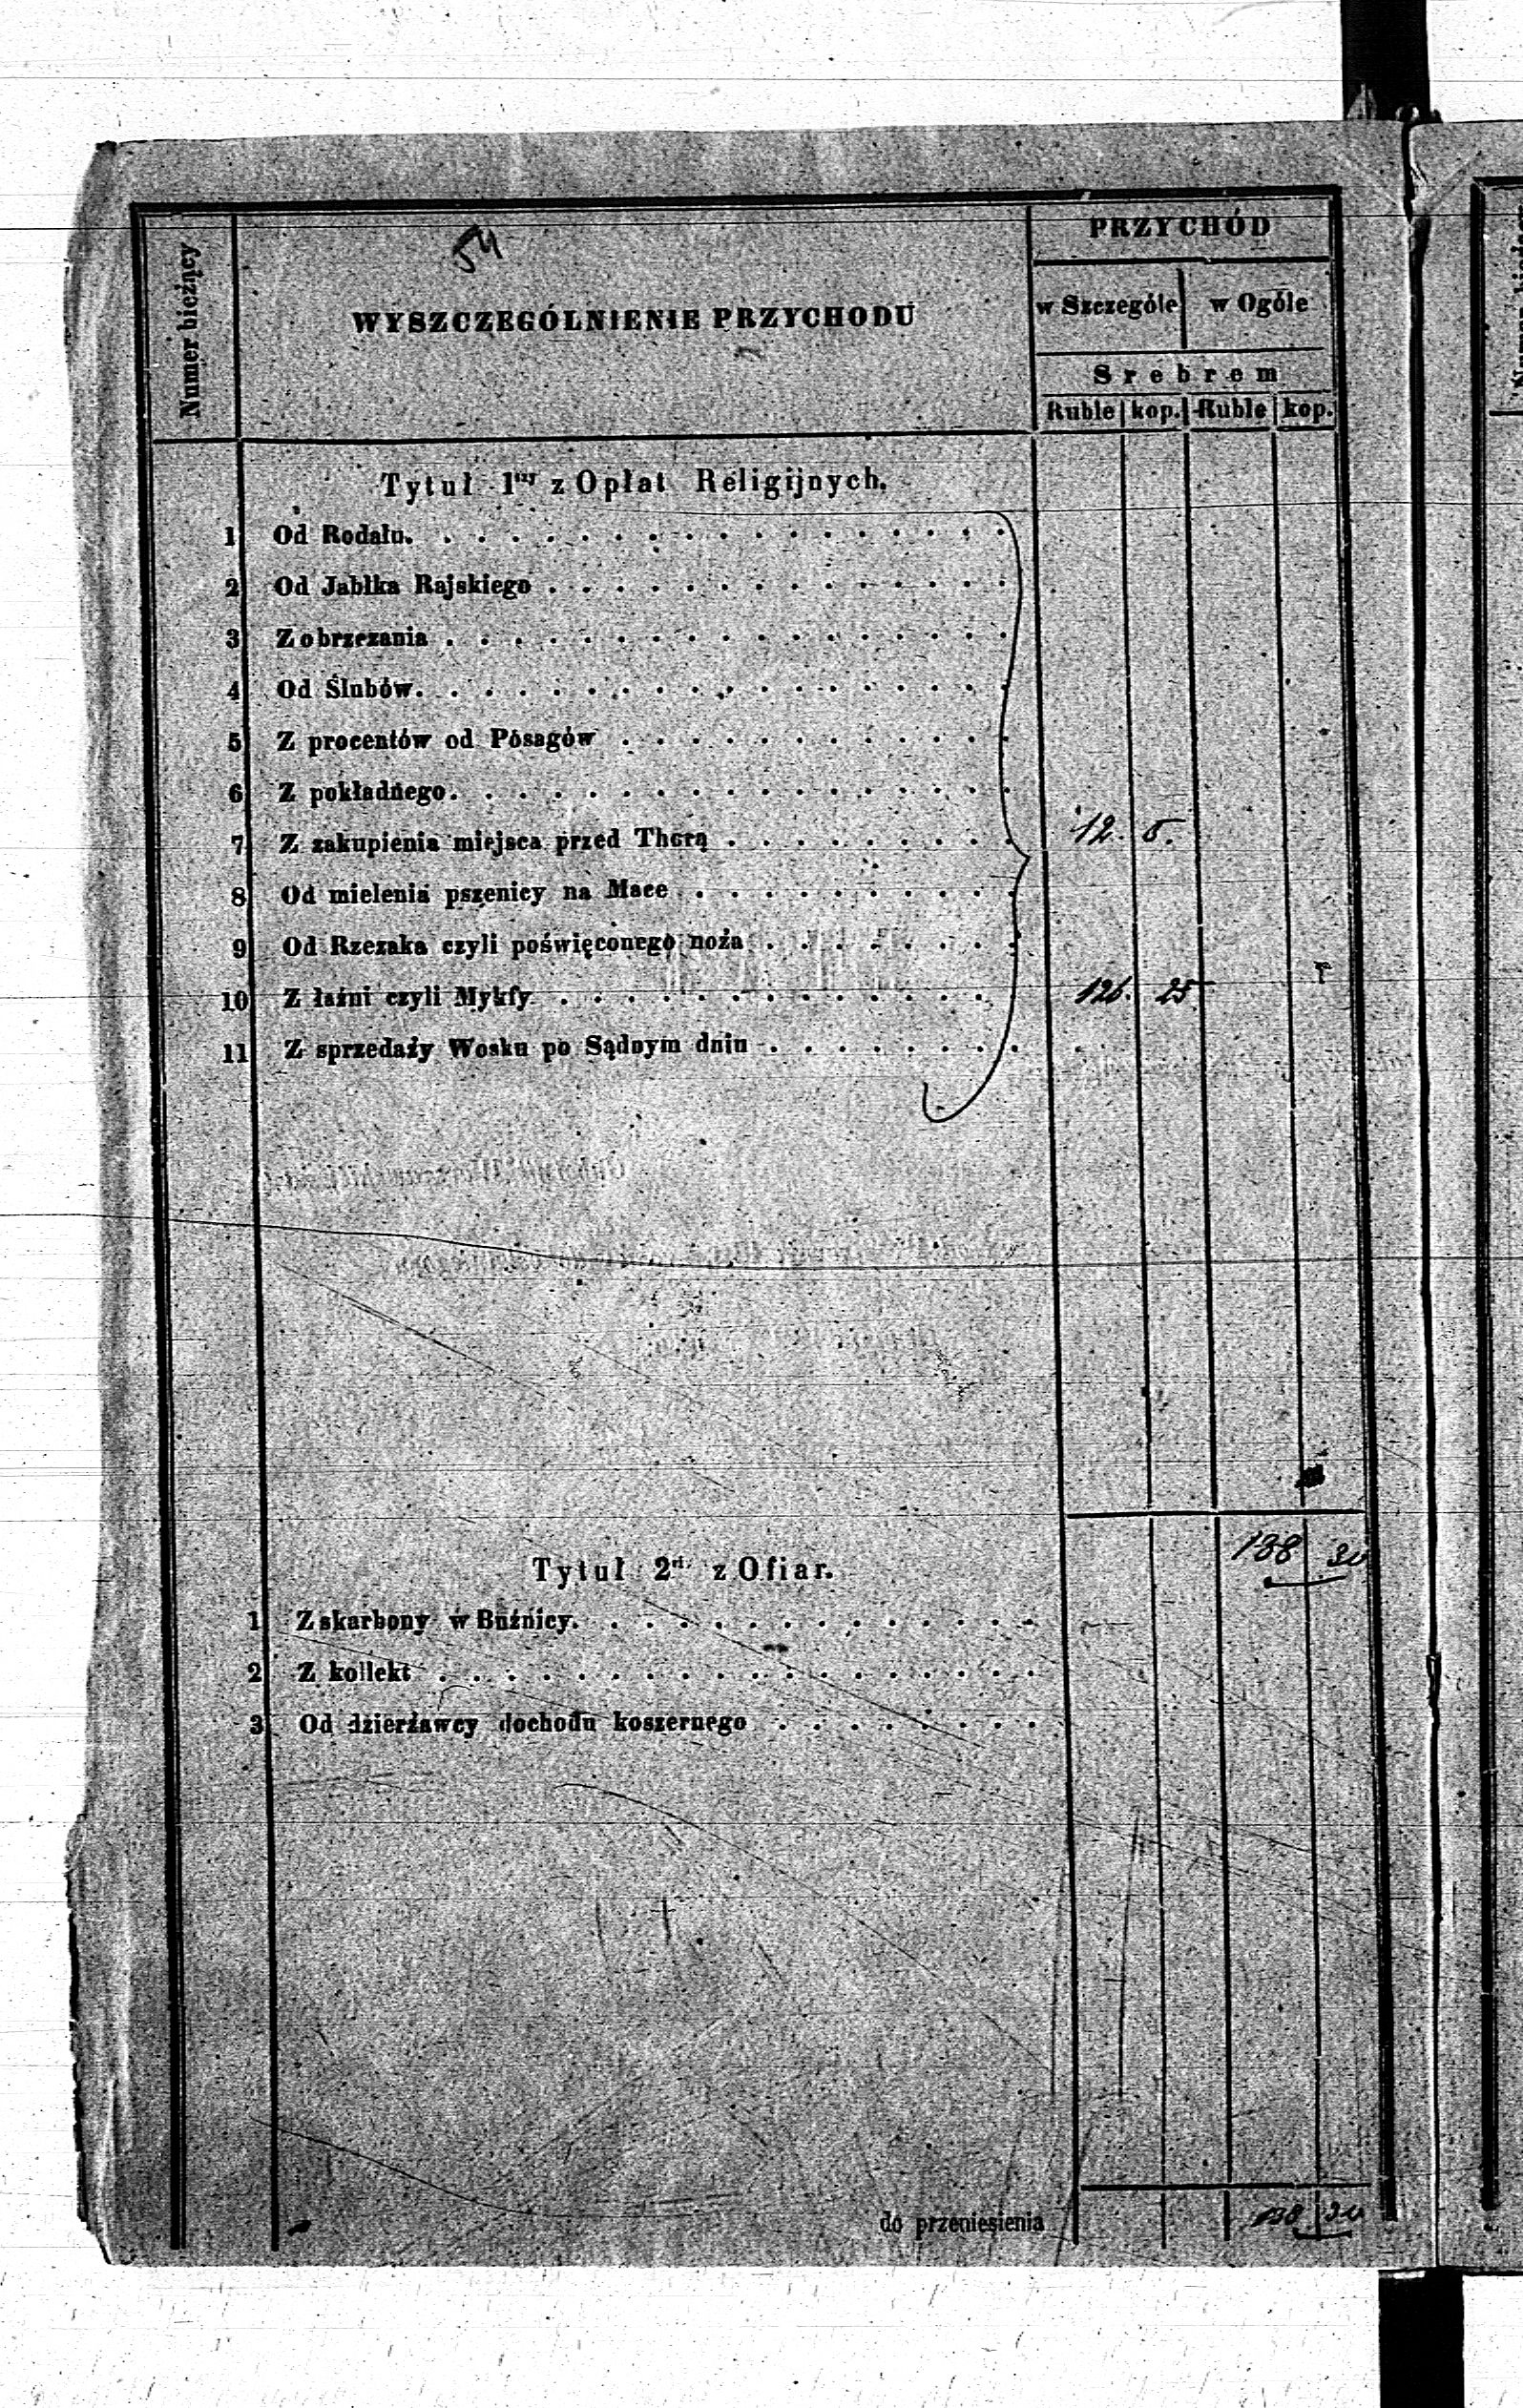 54
Numer bieżący
WYSZCZEGÓLNIENIE PRZYCHODU
PRZYCHÓD
w Szczególe w Ogóle
Srebrem
Ruble kop. Ruble kop.
Tytuł 1ny z Opłat Religijnych.
1 Od Rodału.
2 Od Jabłka Rajskiego
3 Z obrzezania
4 Od Ślubów.
5 Z procentów od Posagów
6 Z pokładnego.
7 Z zakupienia miejsca przed Thorą 12. 5.
8 Od mielenia pszenicy na Mace
9 Od Rzezaka czyli poświęconego noża
10 Z łaźni czyli Mykfy 126. 25
11 Z sprzedaży Wosku po Sądnym dniu
138 30
Tytuł 2gi z Ofiar.
1 Z skarbony w Bóźnicy.
2 Z kollekt
3 Od dzierżawcy dochodu koszernego
do przeniesienia 138 30